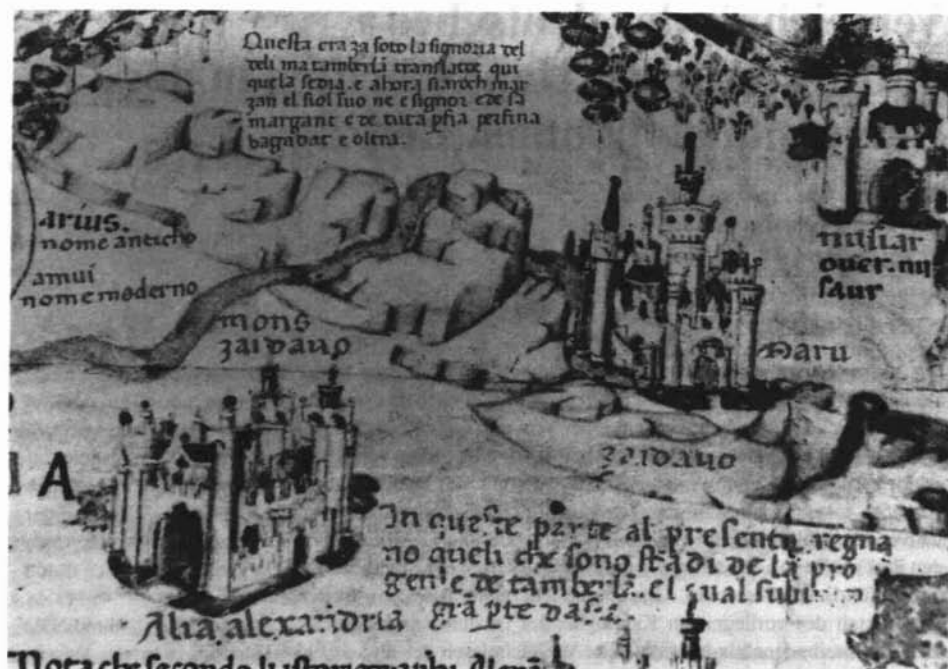 Questa era za soto la signoria del
deli ma tamberlã translatte qui
quela sedia. e ahora siaroch mar
zan el fiol suo ne e signor e de sã
margant e de tuta psia perfina
bagadat e oltra.
arius.
nome anticho
amui
nome moderno
mons
zaidano
nisiar
over. nii
saur
Maru
zaidano
I A
In queste parte al presente regna
no queli che sono stadi de la pro
genie de tamberlã. el qual
grã pte
Alia alexandria
Nota che secondo